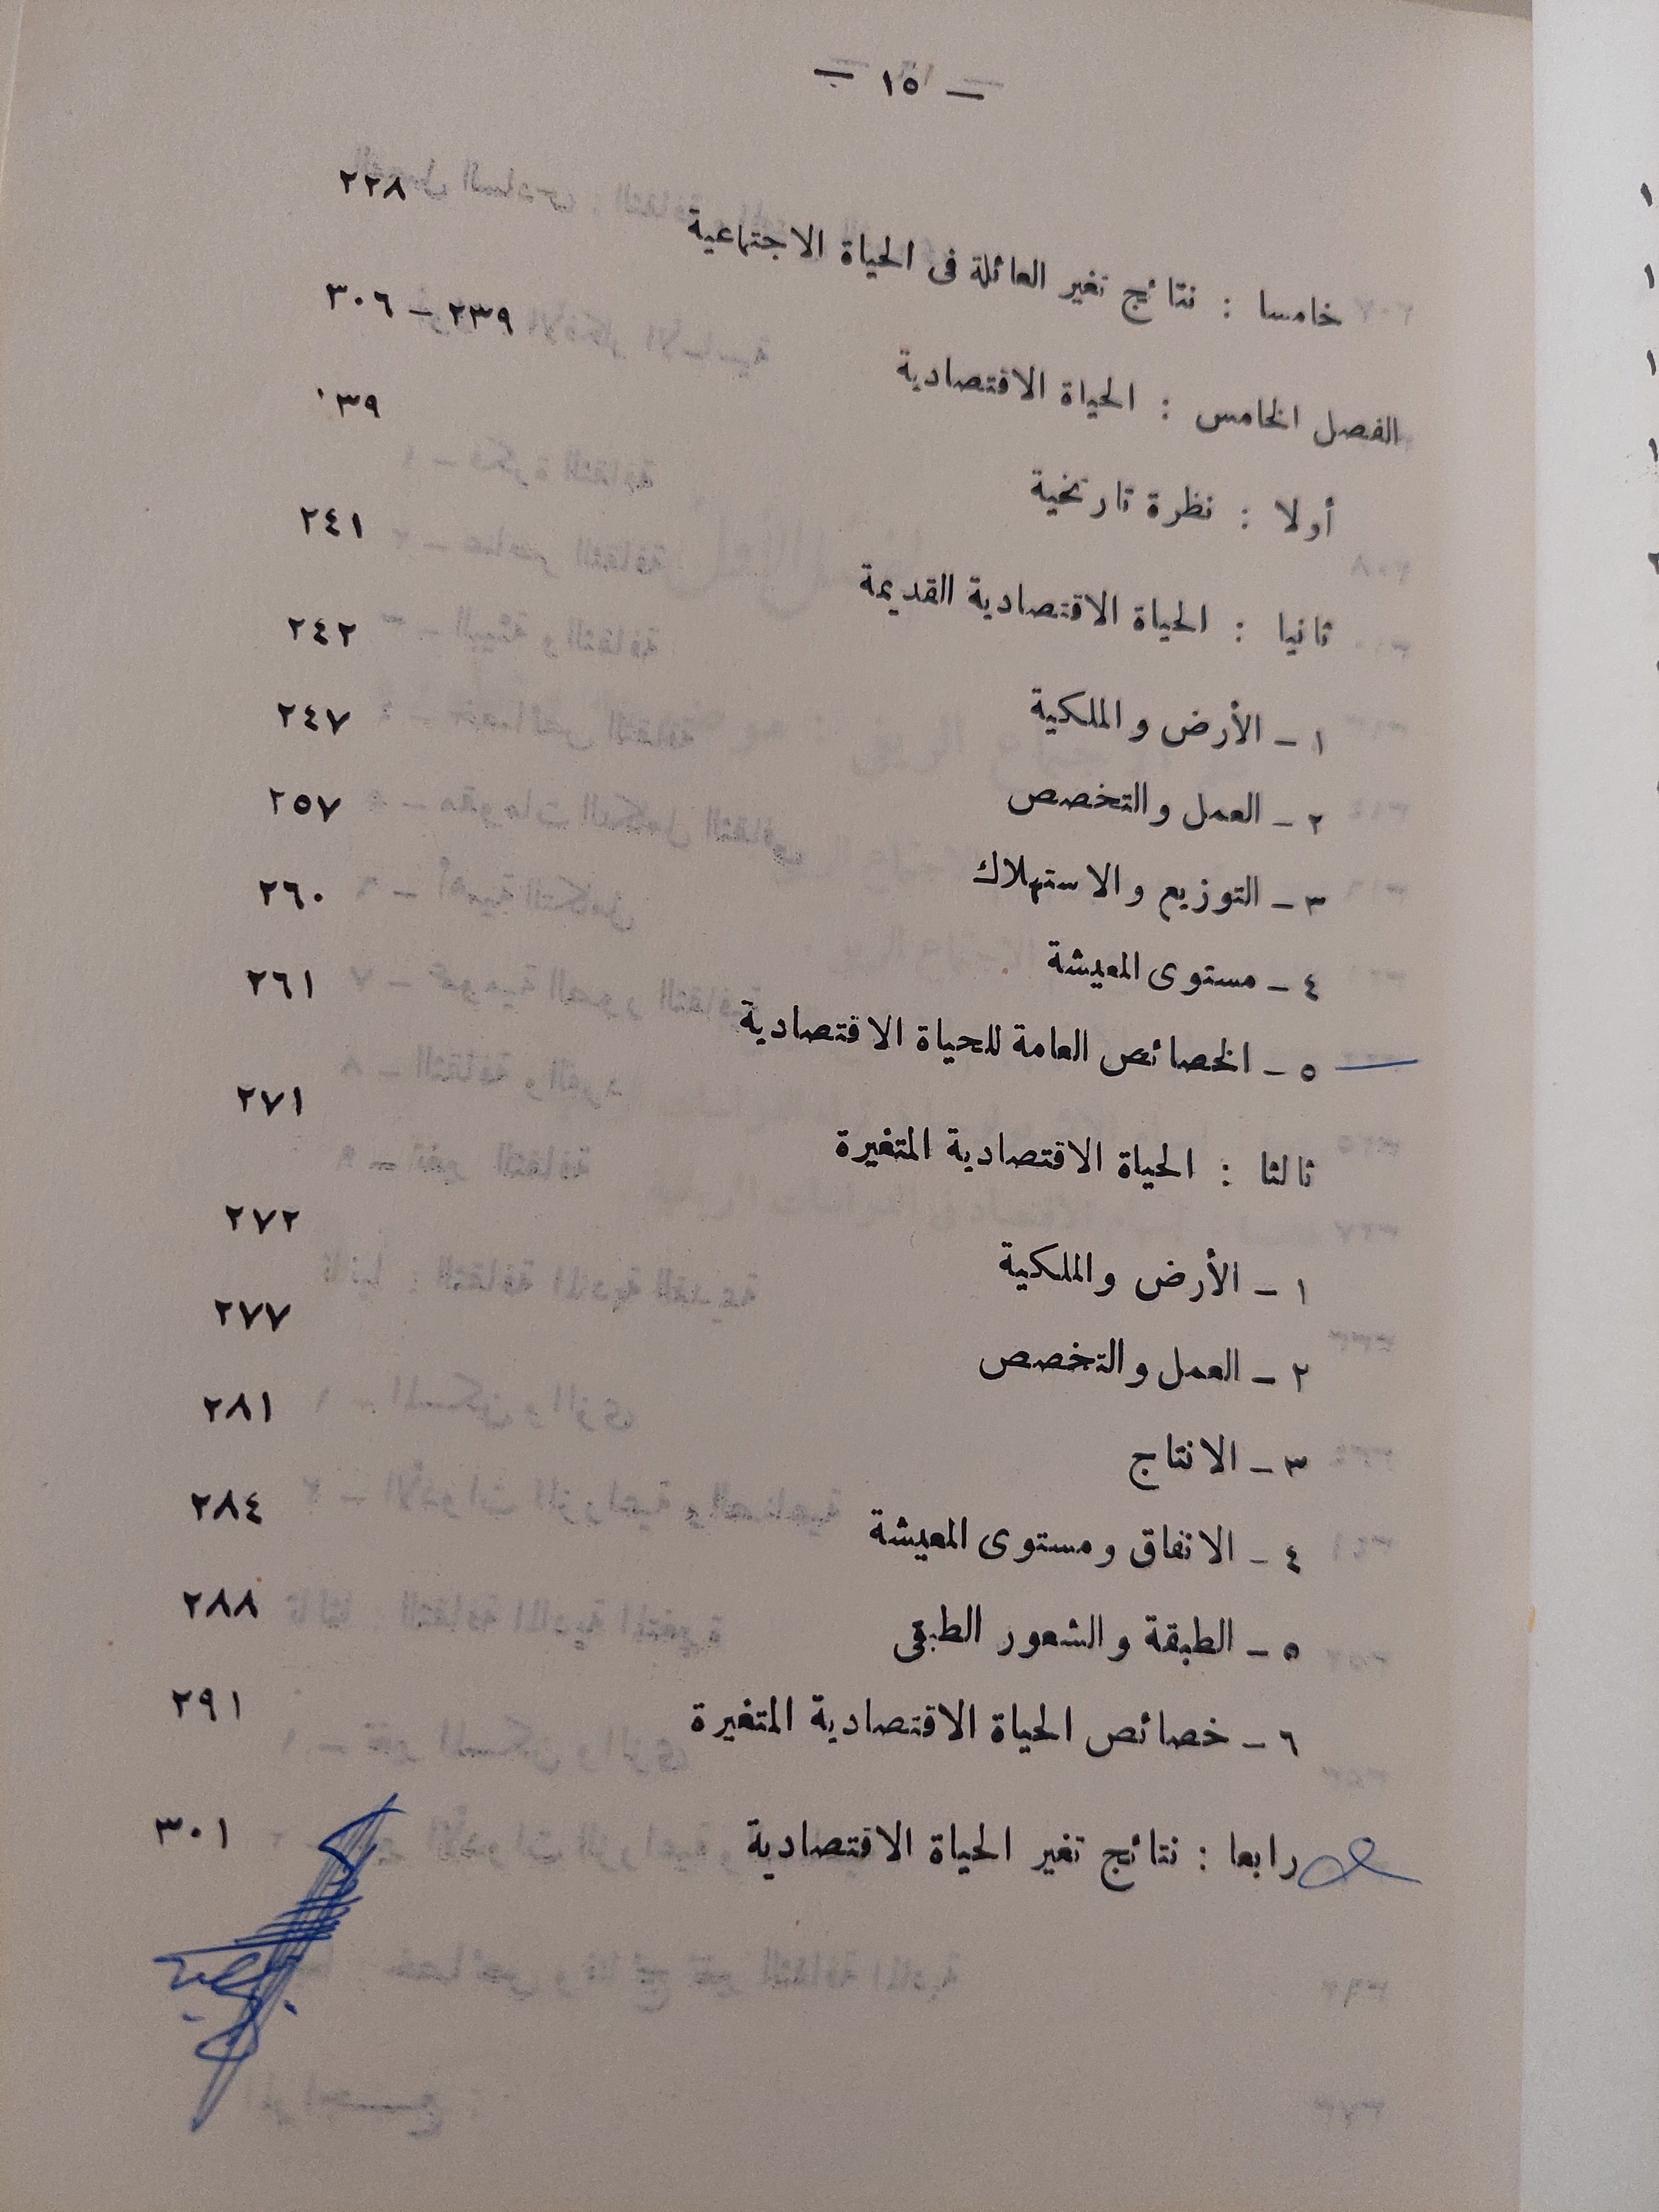 — ١٥ —
خامسا : نتائج تغير العائلة فى الحياة الاجتماعية ٢٢٨
الفصل الخامس : الحياة الاقتصادية ٢٣٩ – ٣٠٦
أولا : نظرة تاريخية ٣٩
ثانيا : الحياة الاقتصادية القديمة ٢٤١
١ – الأرض والملكية ٢٤٢
٢ – العمل والتخصص ٢٤٧
٣ – التوزيع والاستهلاك ٢٥٧
٤ – مستوى المعيشة ٢٦٠
٥ – الخصائص العامة للحياة الاقتصادية ٢٦١
ثالثا : الحياة الاقتصادية المتغيرة ٢٧١
١ – الأرض والملكية ٢٧٢
٢ – العمل والتخصص ٢٧٧
٣ – الانتاج ٢٨١
٤ – الانفاق ومستوى المعيشة ٢٨٤
٥ – الطبقة والشعور الطبقى ٢٨٨
٦ – خصائص الحياة الاقتصادية المتغيرة ٢٩١
رابعا : نتائج تغير الحياة الاقتصادية ٣٠١